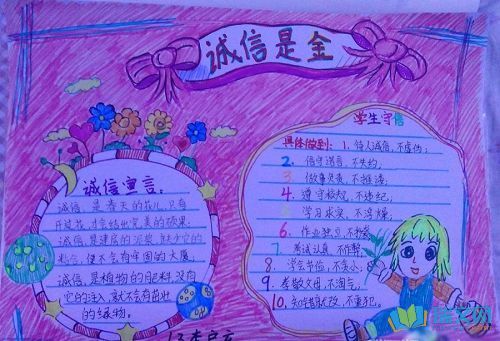 诚信是金
诚信宣言：
诚信，是春天的花儿，只有
开过花，才会结出完美的硕果；
诚信，是建房的泥浆，缺少它的
粘合，便不会有牢固的大厦。
诚信，是植物的肥料，没有
它的注入，就不会有茁壮
的绿物。
学生守信
具体做到：1、待人诚信，不虚伪；
2、信守诺言，不失约；
3、做事负责，不推诿；
4、遵守校规，不违纪；
5、学习求实，不浮躁；
6、作业独立，不抄袭；
7、考试认真，不作弊；
8、学会节俭，不贪小；
9、孝敬父母，不淘气；
10、知错就改，不重犯。